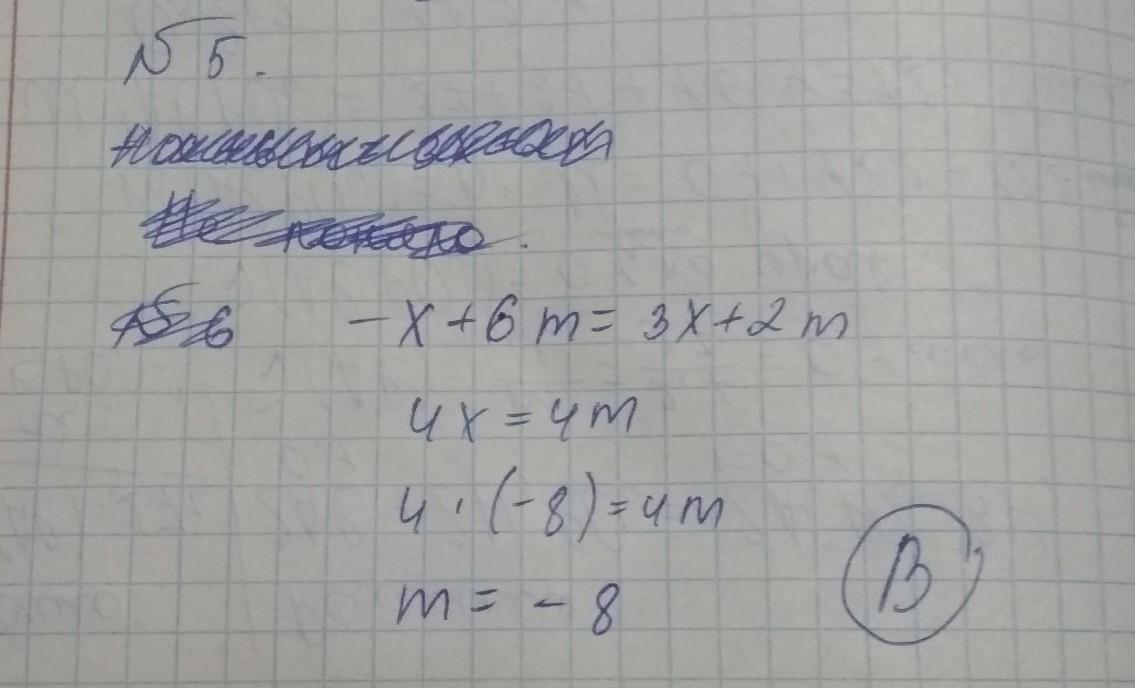 № 5.
-x+6m=3x+2m
4x=4m
4·(-8)=4m
m=-8
B